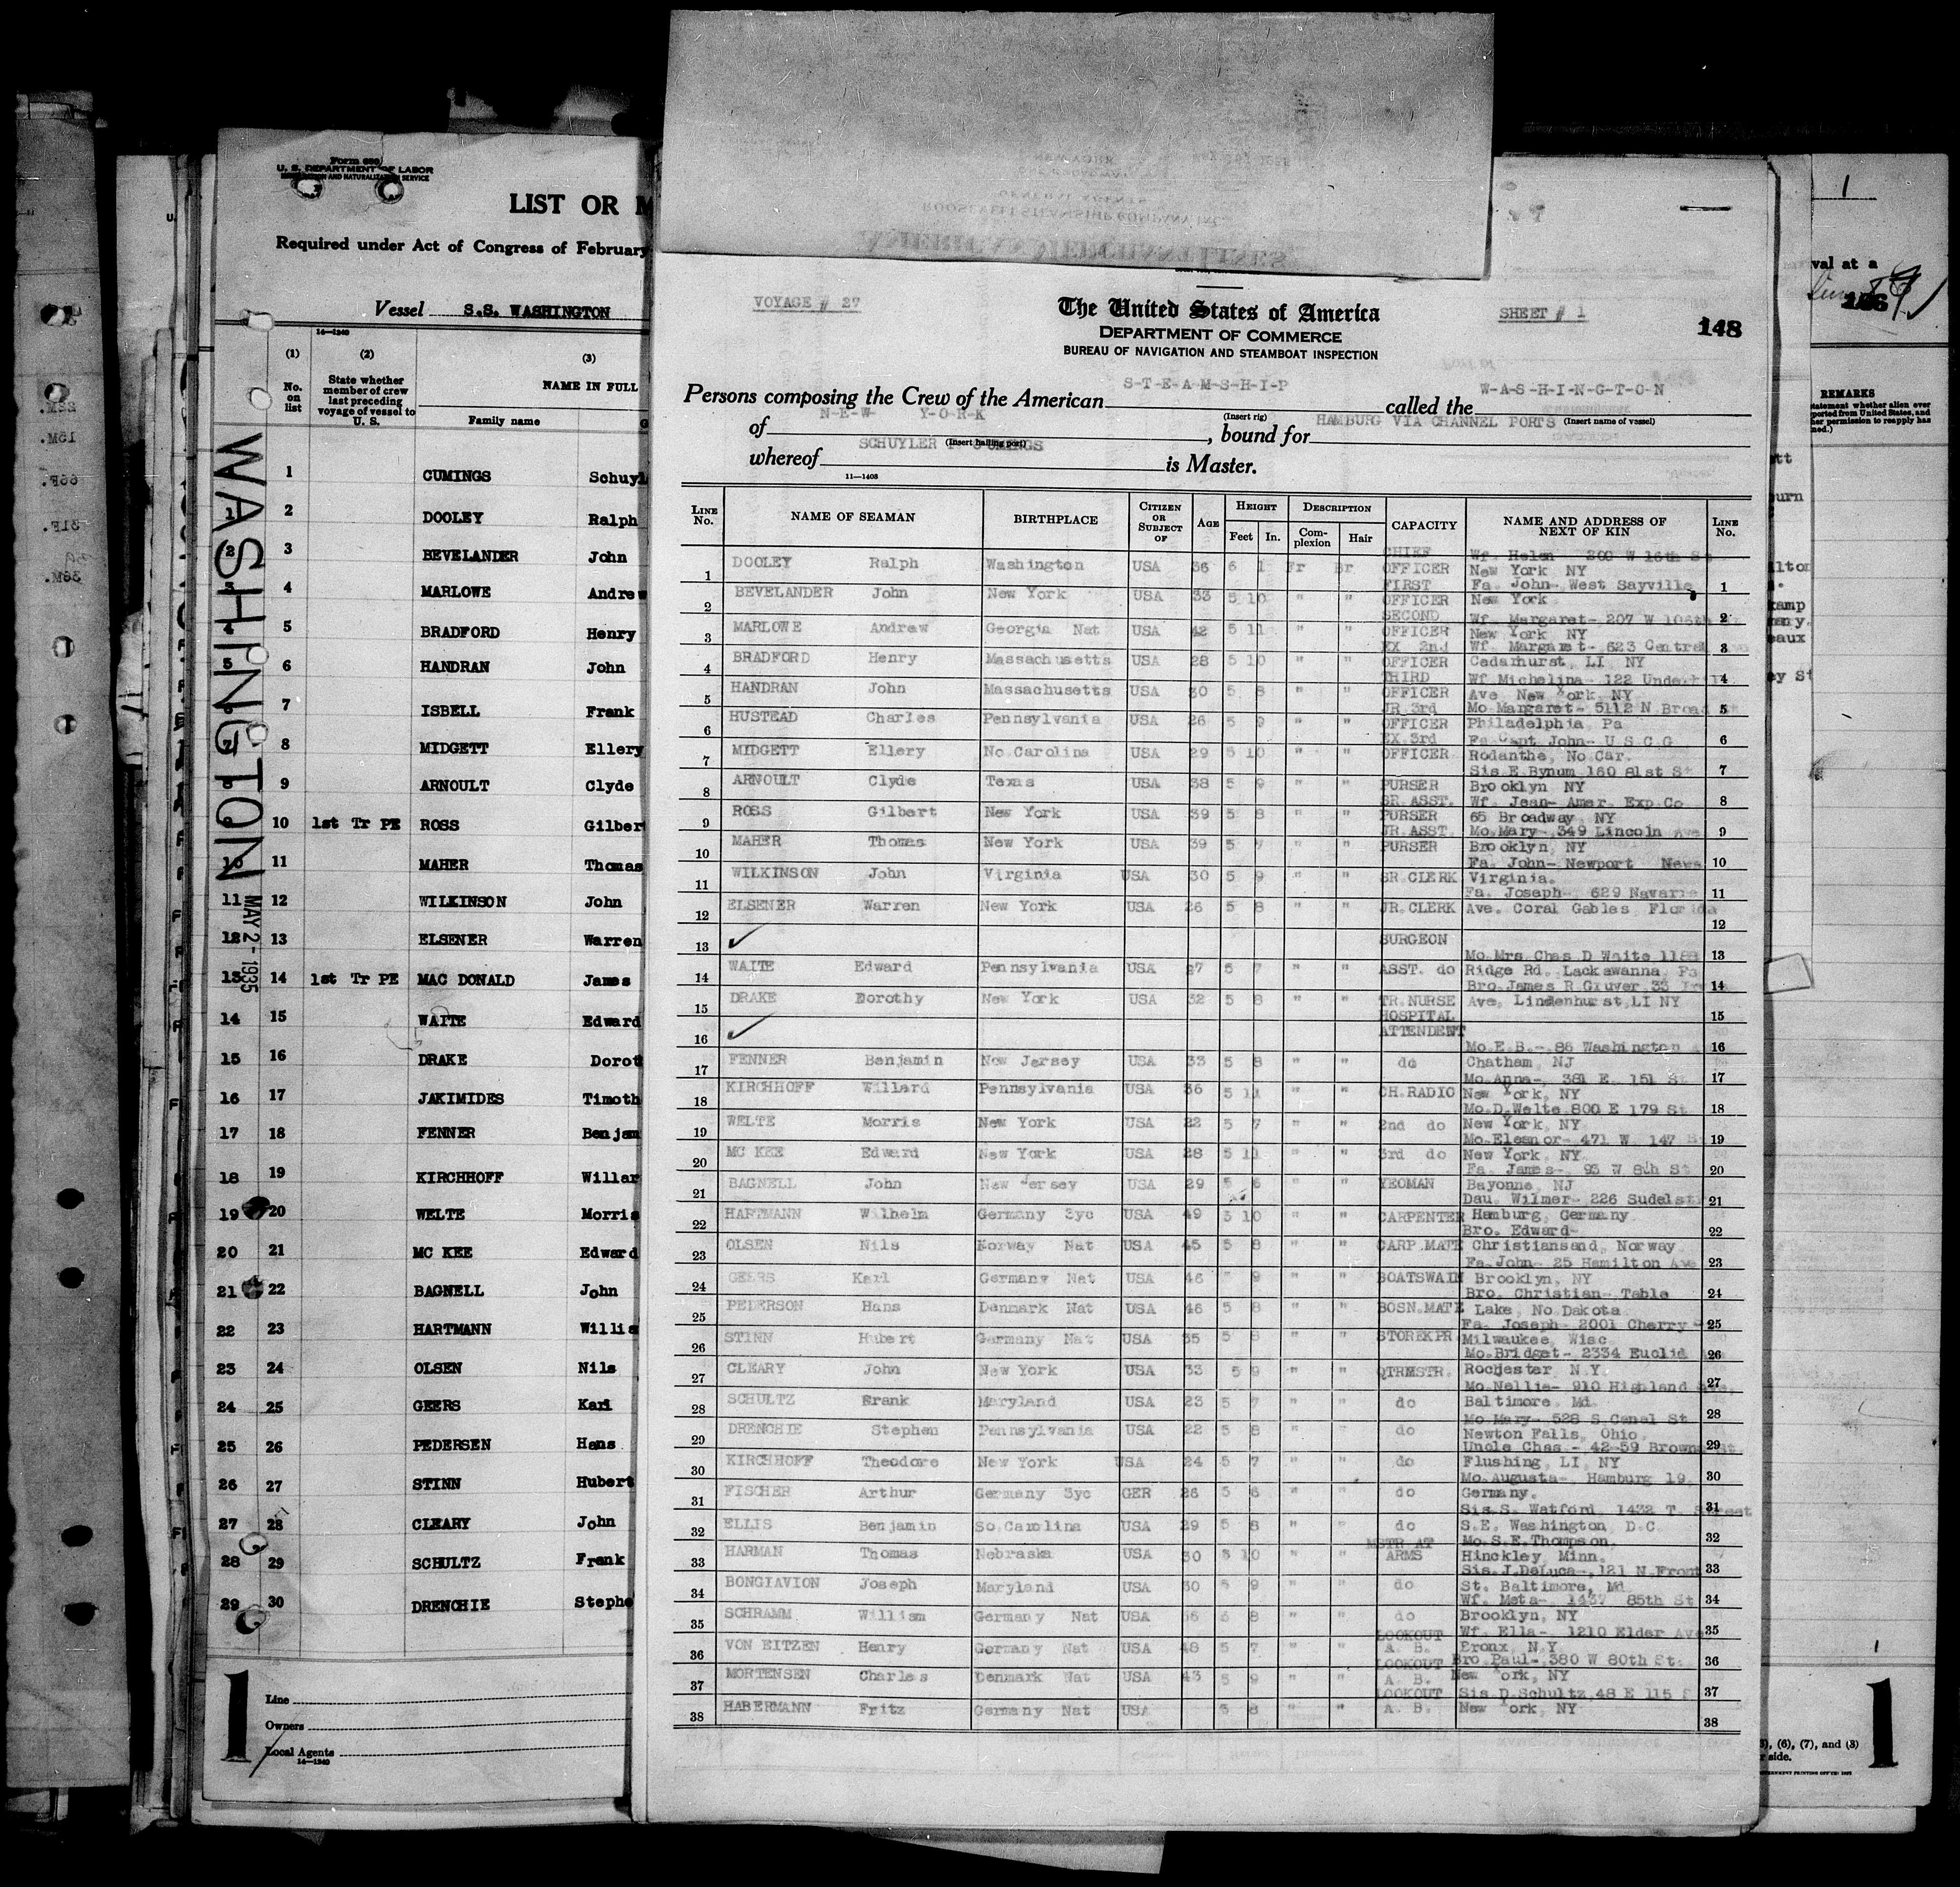 Form 689
U. S. DEPARTMENT OF LABOR
IMMIGRATION AND NATURALIZATION SERVICE
LIST OR M
Required under Act of Congress of February
Vessel S.S. WASHINGTON
14—1240
(1) (2) (3)
No. on list
State whether member of crew last preceding voyage of vessel to U. S.
NAME IN FULL
Family name G
WASHINGTON
MAY 2 - 1935
1 CUMINGS Schuyl
1 2 DOOLEY Ralph
2 3 BEVELANDER John
3 4 MARLOWE Andrew
4 5 BRADFORD Henry
5 6 HANDRAN John
6 7 ISBELL Frank
7 8 MIDGETT Ellery
8 9 ARNOULT Clyde
9 10 1st Tr PE ROSS Gilber
10 11 MAHER Thomas
11 12 WILKINSON John
12 13 ELSENER Warren
13 14 1st Tr PE MAC DONALD James
14 15 WAITE Edward
15 16 DRAKE Dorot
16 17 JAKIMIDES Timoth
17 18 FENNER Benjam
18 19 KIRCHHOFF Willar
19 20 WELTE Morris
20 21 MC KEE Edward
21 22 BAGNELL John
22 23 HARTMANN Willia
23 24 OLSEN Nils
24 25 GEERS Karl
25 26 PEDERSEN Hans
26 27 STINN Hubert
27 28 CLEARY John
28 29 SCHULTZ Frank
29 30 DRENCHIE Stephe
1
Line
Owners
Local Agents
14—1240
VOYAGE # 27
The United States of America
SHEET # 1
148
DEPARTMENT OF COMMERCE
BUREAU OF NAVIGATION AND STEAMBOAT INSPECTION
Persons composing the Crew of the American S-T-E-A-M-S-H-I-P called the W-A-S-H-I-N-G-T-O-N
(Insert rig) (Insert name of vessel)
of N-E-W- Y-O-R-K, bound for HAMBURG VIA CHANNEL PORTS
(Insert hailing port)
whereof SCHUYLER F CUMINGS is Master.
11—1408
LINE No. NAME OF SEAMAN BIRTHPLACE CITIZEN OR SUBJECT OF AGE HEIGHT Feet In. DESCRIPTION Complexion Hair CAPACITY NAME AND ADDRESS OF NEXT OF KIN LINE No.
1 DOOLEY Ralph Washington USA 36 6 1 Fr Br CHIEF OFFICER Wf. Helen 200 W 16th St New York NY 1
2 BEVELANDER John New York USA 33 5 10 " " FIRST OFFICER Fa. John- West Sayville New York 2
3 MARLOWE Andrew Georgia Nat USA 42 5 11 " " SECOND OFFICER Wf. Margaret- 207 W 106th New York NY 3
4 BRADFORD Henry Massachusetts USA 28 5 10 " " EX 2nd OFFICER Wf. Margaret- 623 Central Cedarhurst, LI NY 4
5 HANDRAN John Massachusetts USA 30 5 8 " " THIRD OFFICER Wf Michelina- 122 Ave New York NY 5
6 HUSTEAD Charles Pennsylvania USA 26 5 9 " " JR 3rd OFFICER Mo Margaret- 5112 N Broad St Philadelphia Pa 6
7 MIDGETT Ellery No Carolina USA 29 5 10 " " EX 3rd OFFICER Fa Capt John- U S C G Rodanthe, No Car. 7
8 ARNOULT Clyde Texas USA 38 5 9 " " PURSER Sis E Bynum 160 81st St Brooklyn NY 8
9 ROSS Gilbert New York USA 39 5 8 " " SR ASST. PURSER Wf. Jean- Amer. Exp Co 65 Broadway, NY 9
10 MAHER Thomas New York USA 39 5 7 " " JR ASST. PURSER Mo Mary- 349 Lincoln Ave Brooklyn, NY 10
11 WILKINSON John Virginia USA 30 5 9 " " SR CLERK Fa. John- Newport News Virginia. 11
12 ELSENER Warren New York USA 26 5 8 " " JR. CLERK Fa. Joseph- 629 Navarre Ave. Coral Gables Florida 12
13 ✓ SURGEON 13
14 WAITE Edward Pennsylvania USA 27 5 7 " " ASST. do Mo Mrs Chas D Waite 1188 Ridge Rd. Lackawanna Pa 14
15 DRAKE Dorothy New York USA 32 5 8 " " TR. NURSE Bro James R Gruver 33 Ave, Lindenhurst, LI NY 15
16 ✓ HOSPITAL ATTENDENT 16
17 FENNER Benjamin New Jersey USA 33 5 8 " " do Mo E. B.- 86 Washington Chatham, NJ 17
18 KIRCHHOFF Willard Pennsylvania USA 36 5 11 " " CH. RADIO Mo Anna-, 381 E. 151 St New York, NY 18
19 WELTE Morris New York USA 22 5 7 " " 2nd do Mo. D. Welte 800 E 179 St New York, NY 19
20 MC KEE Edward New York USA 28 5 11 " " 3rd do Mo Eleanor- 471 W 147 New York NY. 20
21 BAGNELL John New Jersey USA 29 5 6 " " YEOMAN Fa. James-, 93 W 8th St Bayonne, NJ 21
22 HARTMANN Wilhelm Germany 3yc USA 49 5 10 " " CARPENTER Dau. Wilmer- 226 Sudelst Hamburg, Germany 22
23 OLSEN Nils Norway Nat USA 45 5 8 " " CARP. MATE Bro. Edward- Christiansand, Norway 23
24 GEERS Karl Germany Nat USA 46 9 " " BOATSWAIN Fa. John- 25 Hamilton Ave Brooklyn, NY 24
25 PEDERSON Hans Denmark Nat USA 46 5 8 " " BOSN. MATE Bro. Christian- Table Lake, No Dakota 25
26 STINN Hubert Germany Nat USA 35 5 8 " " STOREKPR Fa. Joseph- 2001 Cherry Milwaukee, Wisc 26
27 CLEARY John New York USA 33 5 9 " " QTRMSTR. Mo. Bridget- 2334 Euclid Rochester N.Y. 27
28 SCHULTZ Frank Maryland USA 23 5 7 " " do Mo Nellie- 910 Highland Ave, Baltimore, Md. 28
29 DRENCHIE Stephen Pennsylvania USA 22 5 8 " " do Mo Mary- 528 S Canal St Newton Falls, Ohio 29
30 KIRCHHOFF Theodore New York USA 24 5 7 " " do Uncle Chas.- 42-59 Browne St Flushing, LI, NY 30
31 FISCHER Arthur Germany 3yc GER 26 5 6 " " do Mo. Augusta- Hamburg 19. Germany. 31
32 ELLIS Benjamin So Carolina USA 29 5 8 " " do Sis S. Watford 1432 T. Street S.E. Washington, D.C. 32
33 HARMAN Thomas Nebraska USA 30 5 10 " " MSTR AT ARMS Mo. S. E. Thompson, Hinckley, Minn. 33
34 BONGIAVION Joseph Maryland USA 30 5 9 " " do Sis. J. DeLuca-, 121 N. Front St. Baltimore, Md 34
35 SCHRAMM William Germany Nat USA 36 5 8 " " do Wf. Meta- 1437 85th St Brooklyn, NY 35
36 VON EITZEN Henry Germany Nat USA 48 5 7 " " LOOKOUT A. B. Wf. Ella- 1210 Elder Ave Bronx, N.Y. 36
37 MORTENSEN Charles Denmark Nat USA 43 5 9 " " LOOKOUT A. B. Bro. Paul- 380 W 80th St. New York, NY 37
38 HABERMANN Fritz Germany Nat USA 5 8 " " LOOKOUT A. B. Sis D. Schultz 48 E 115 New York, NY 38
1
val at a
REMARKS
ported from United States, and
her permission to reapply has
urn
ilton
kamp
any.
eaux
ey St
1
), (6), (7), and (8)
r side.
1